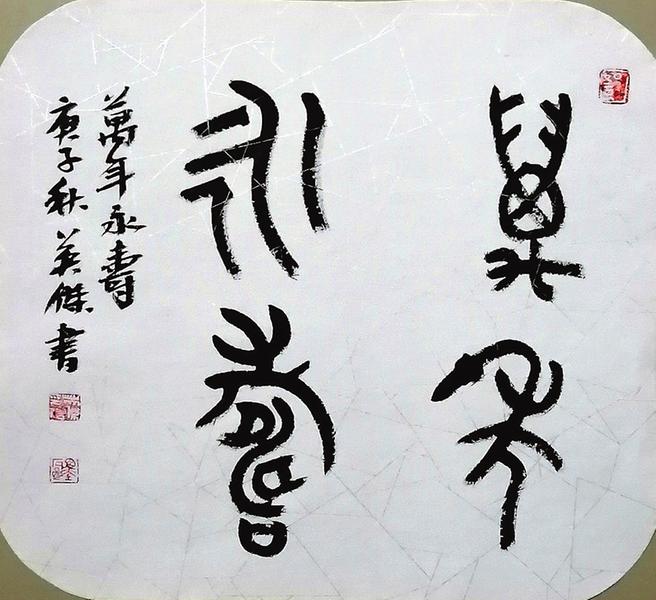 萬年
永壽
萬年永壽
庚子秋英傑書